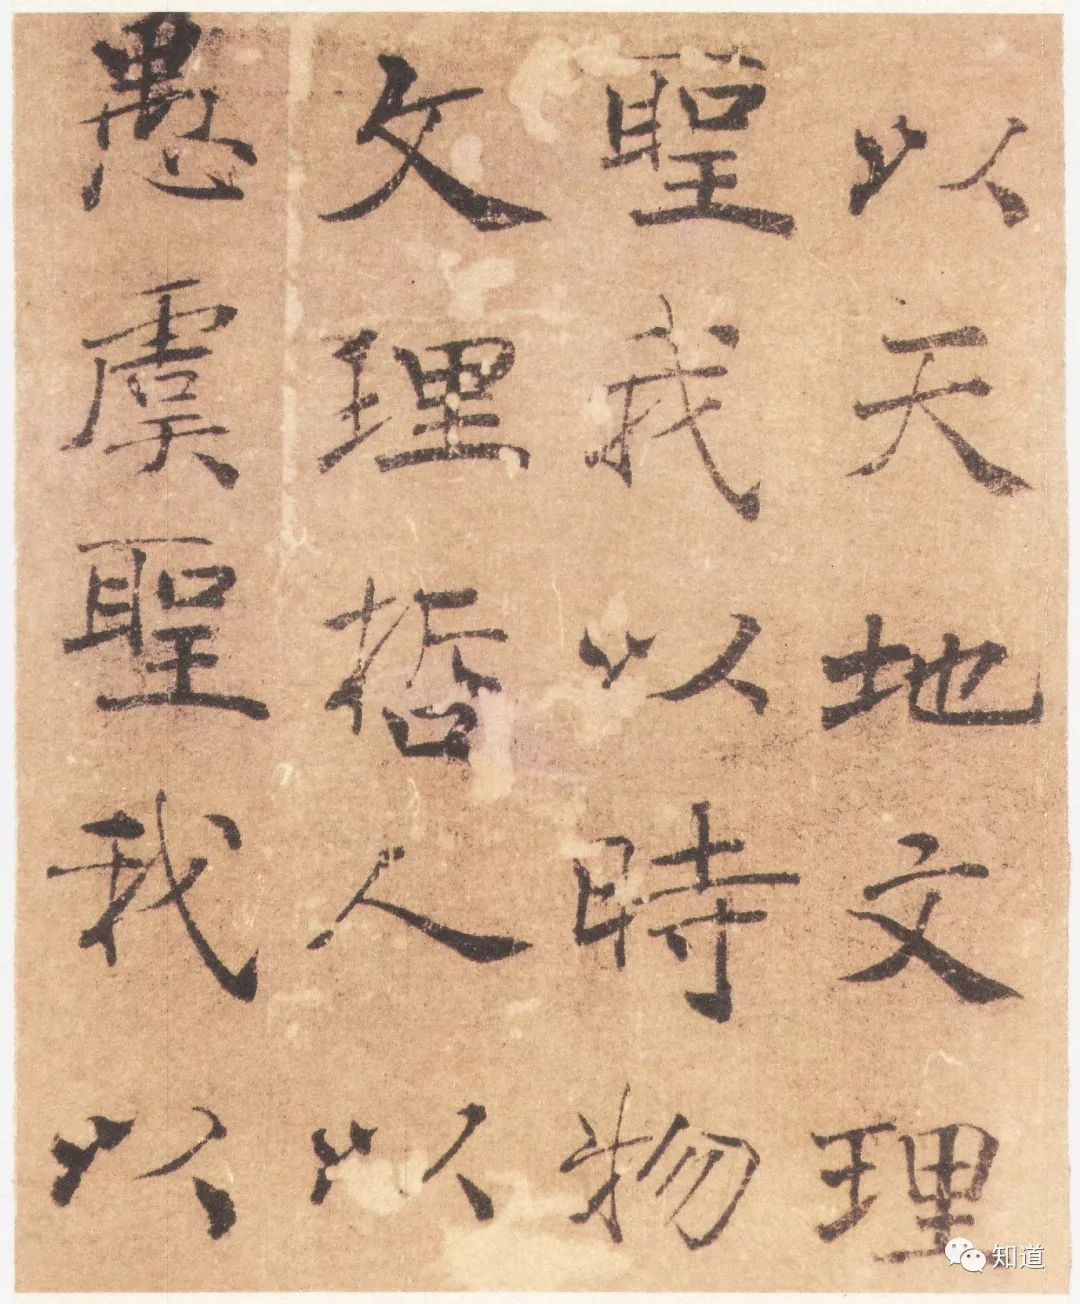 以天地文理
聖我以時物
文理哲人以
愚虞聖我以
知道